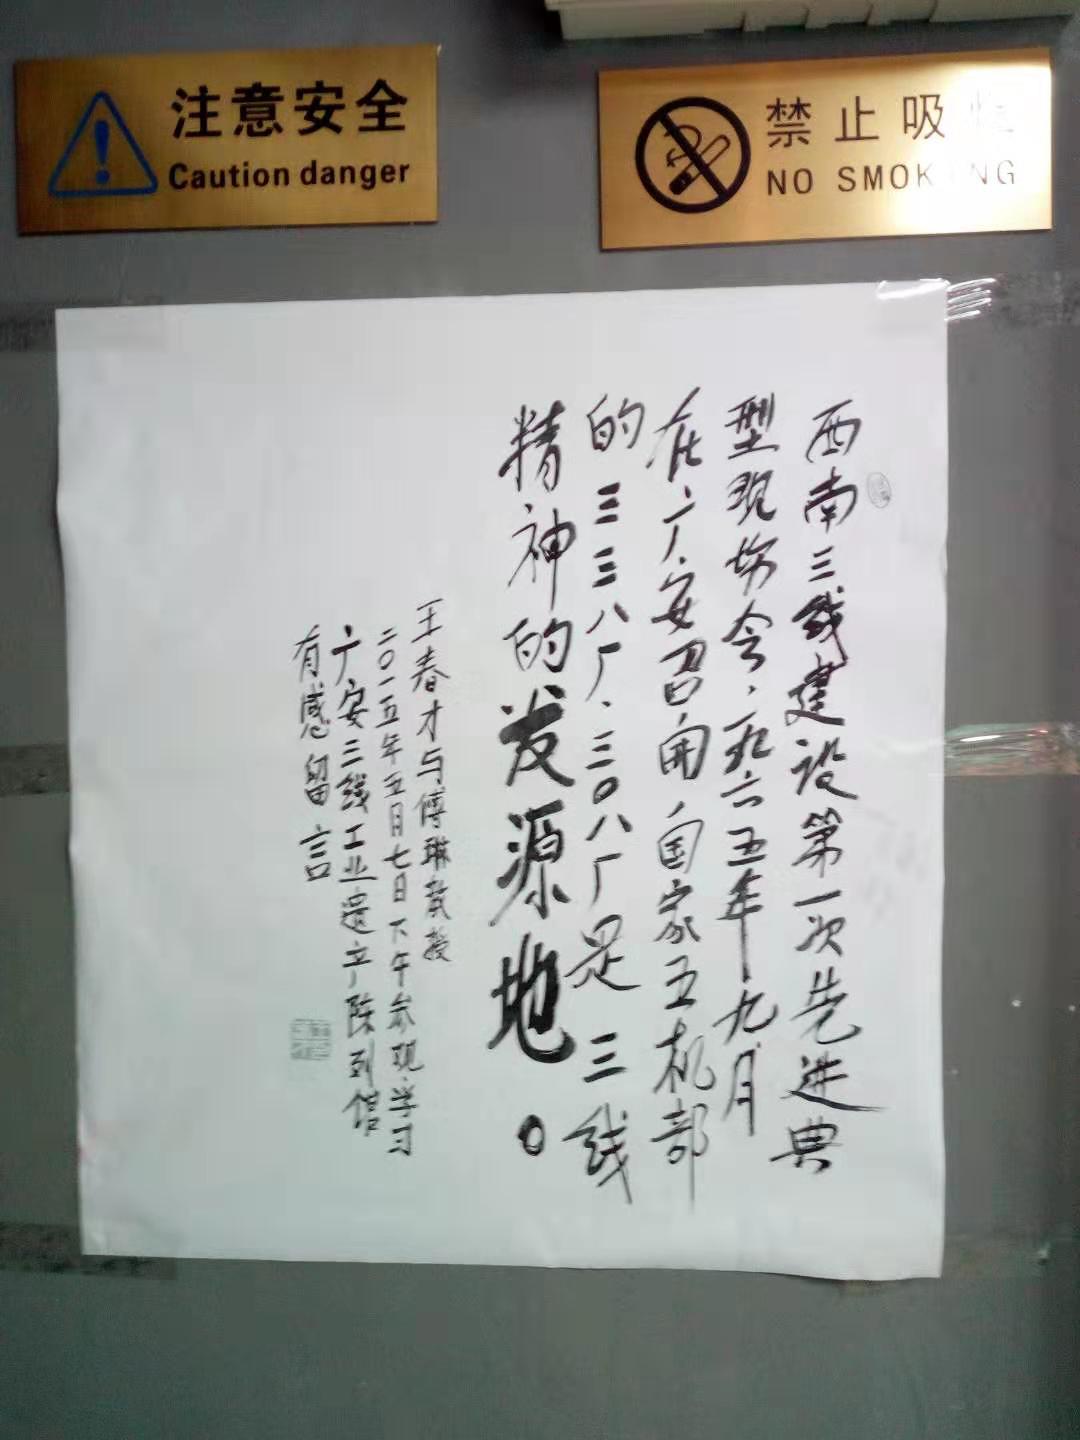 注意安全
Caution danger
禁止吸烟
NO SMOKING
西南三线建设第一次先进典
型现场会、一九六五年九月
在广安召开国家五机部
的三三八厂、三〇八厂是三线
精神的发源地。
王春才与傅琳教授
二〇一五年五月七日下午参观学习
广安三线工业遗产陈列馆
有感留言